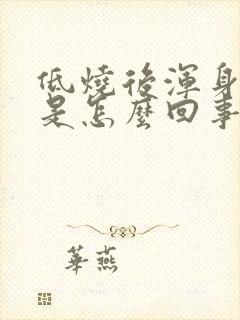 低燒後渾身
是怎麼回事
華燕